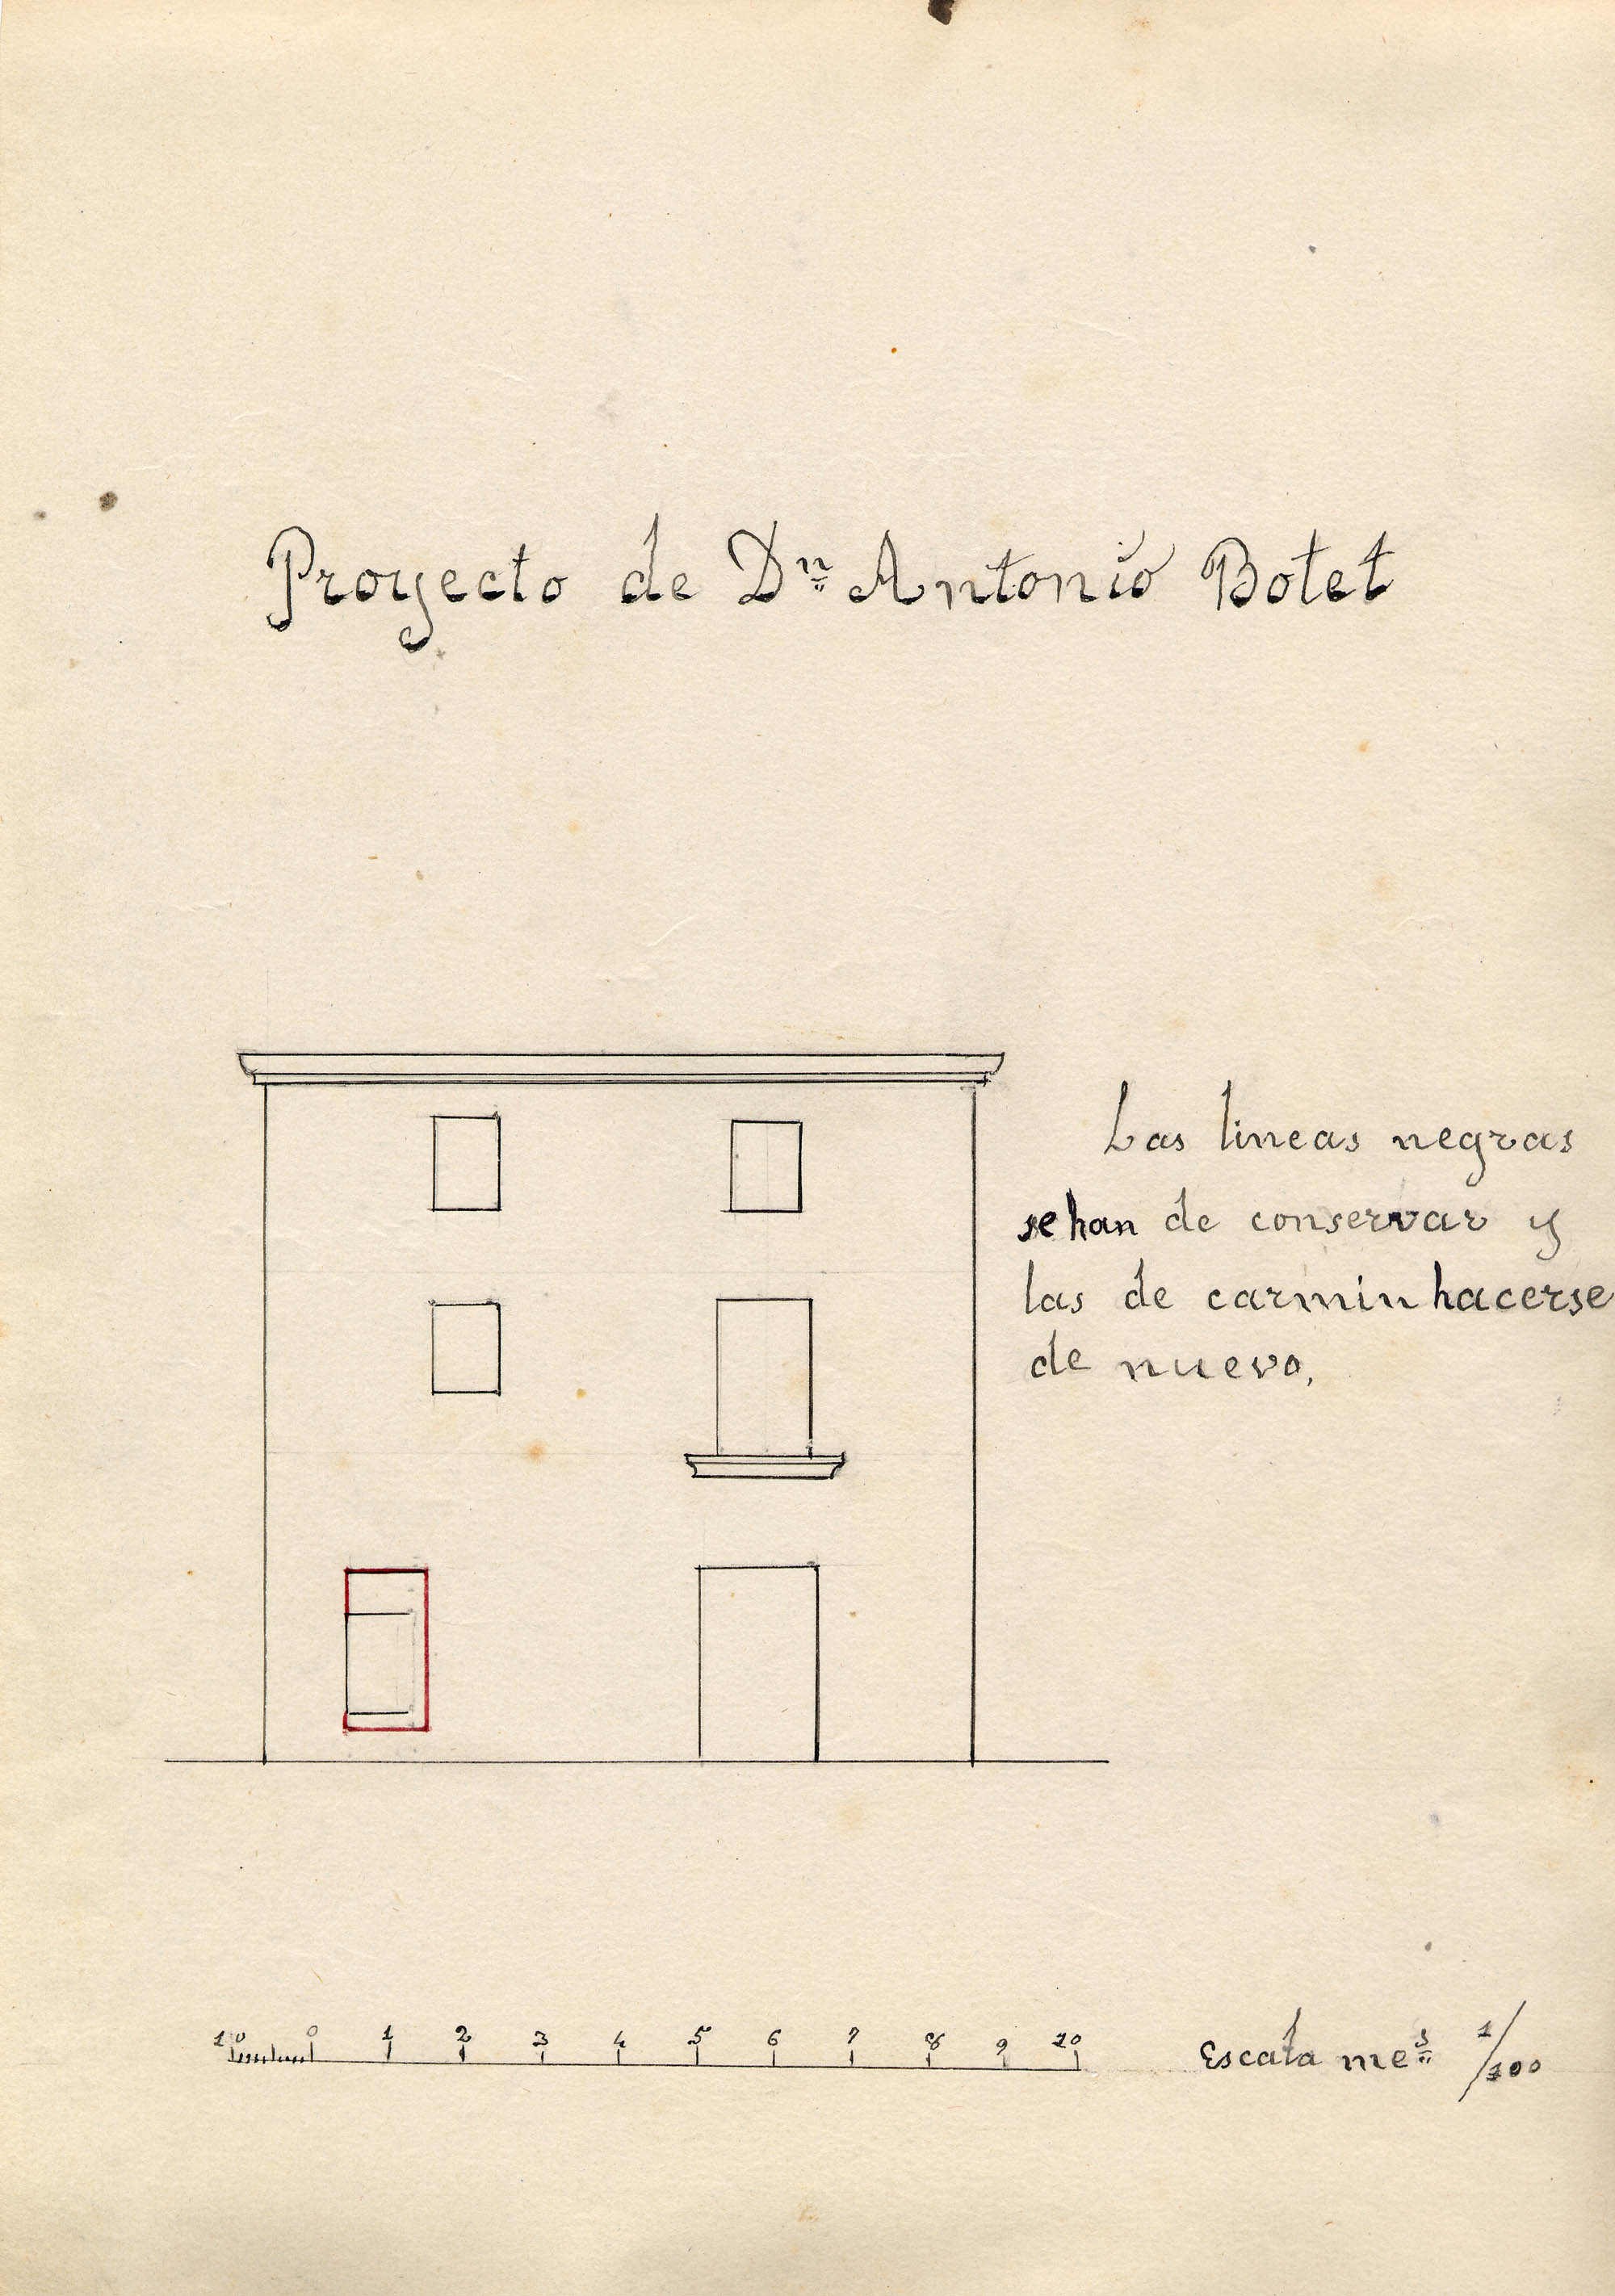 Proyecto de Dⁿ Antonio Botet
Las lineas negras
se han de conservar y
las de carmin hacerse
de nuevo.
10 0 1 2 3 4 5 6 7 8 9 10 Escala meˢ 1/100